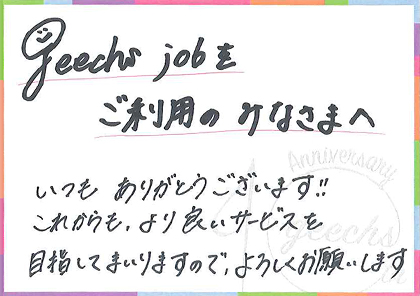 geechs jobを
ご利用のみなさまへ
いつも ありがとうございます!!
これからも、より良いサービスを
目指してまいりますので、よろしくお願いします
Anniversary
geechs